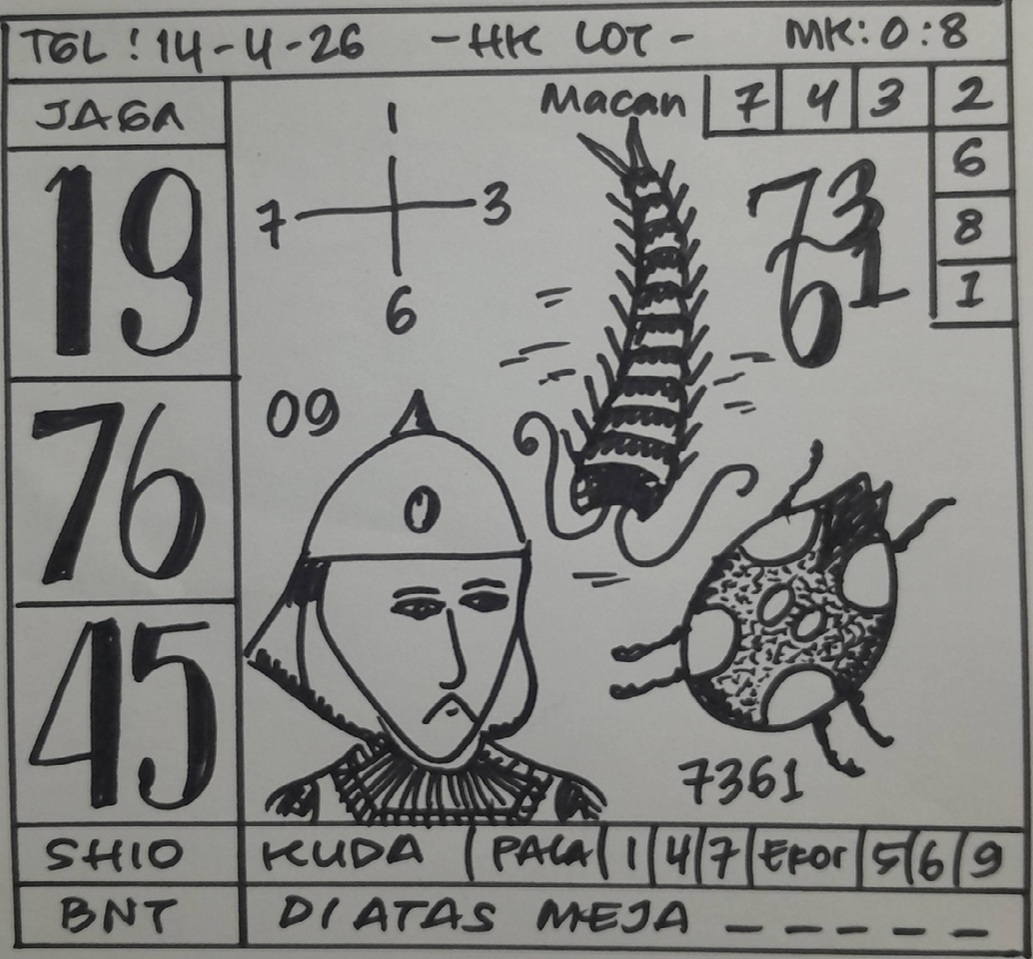 TGL ! 14-4-26 -HK LOT- MK:0:8
JAGA
19
76
45
1
7 3
6
09
0
Macan 7 4 3 2
6
8
1
73
61
7361
SHIO KUDA PALA 1 4 7 Ekor 5 6 9
BNT DI ATAS MEJA _ _ _ _ _